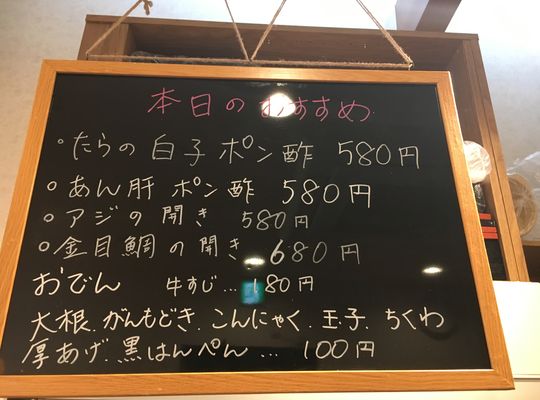 本日のおすすめ
・たらの白子ポン酢 580円
○あん肝ポン酢 580円
○アジの開き 580円
○金目鯛の開き 680円
おでん 牛すじ…180円
大根.がんもどき.こんにゃく.玉子.ちくわ
厚あげ.黒はんぺん… 100円